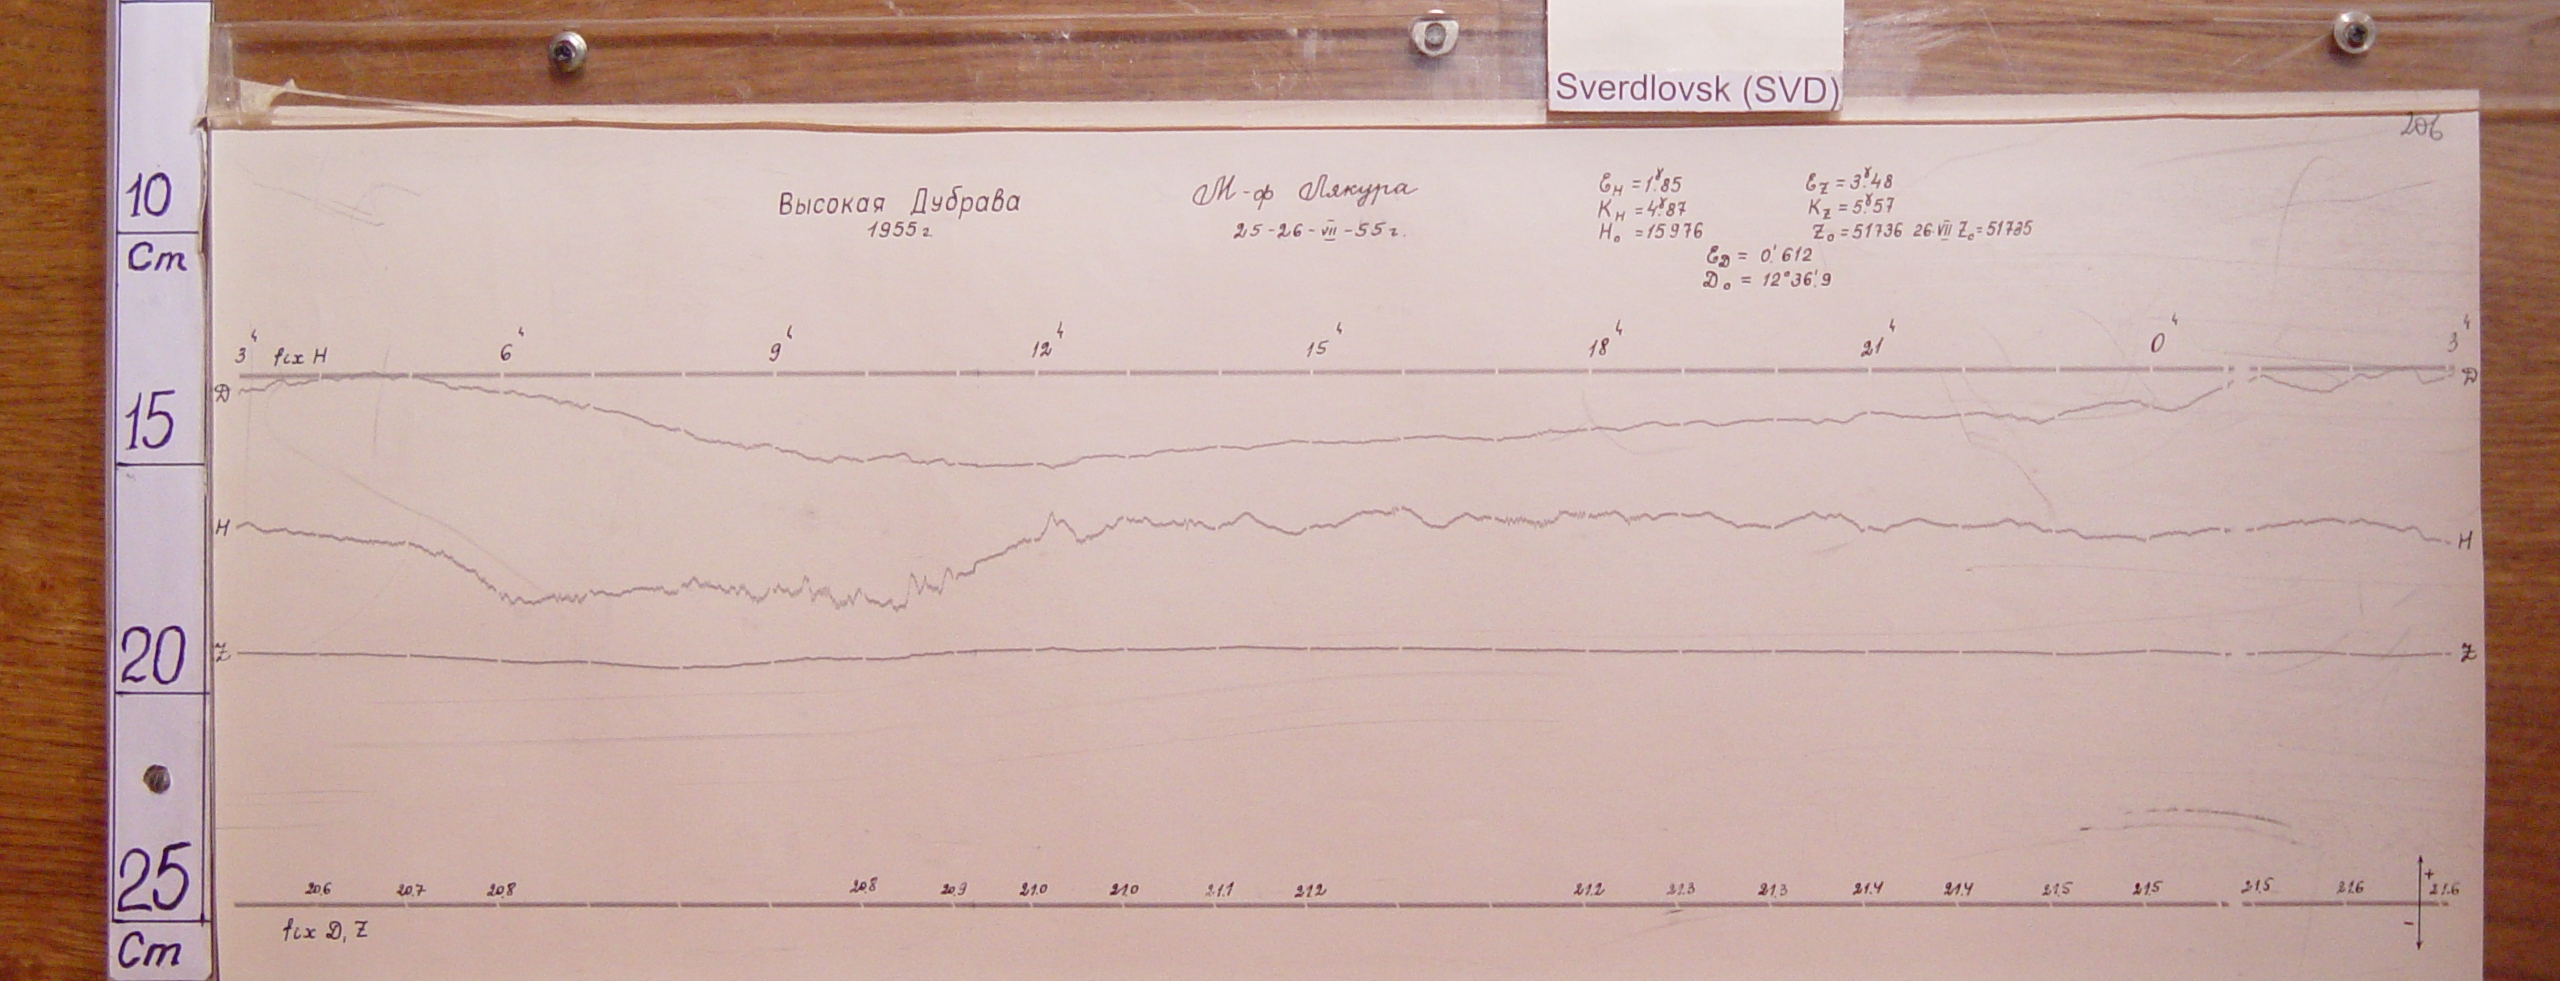 Sverdlovsk (SVD)
206
10
Cm
15
20
25
Cm
Высокая Дубрава
1955 г.
М-ф Лякура
25-26-VII-55 г.
Ɛ_H = 1.ˠ85
K_H = 4.ˠ87
H₀ = 15976
Ɛ_Z = 3.ˠ48
K_Z = 5.ˠ57
Z₀ = 51736 26 VII Z₀ = 51735
Ɛ_D = 0.'612
D₀ = 12°36.'9
3ч fix H 6ч 9ч 12ч 15ч 18ч 21ч 0ч 3ч
D D
H H
Z Z
20.6 20.7 20.8 20.8 20.9 21.0 21.0 21.1 21.2 21.2 21.3 21.3 21.4 21.4 21.5 21.5 21.5 21.6 21.6
+
-
fix D, Z